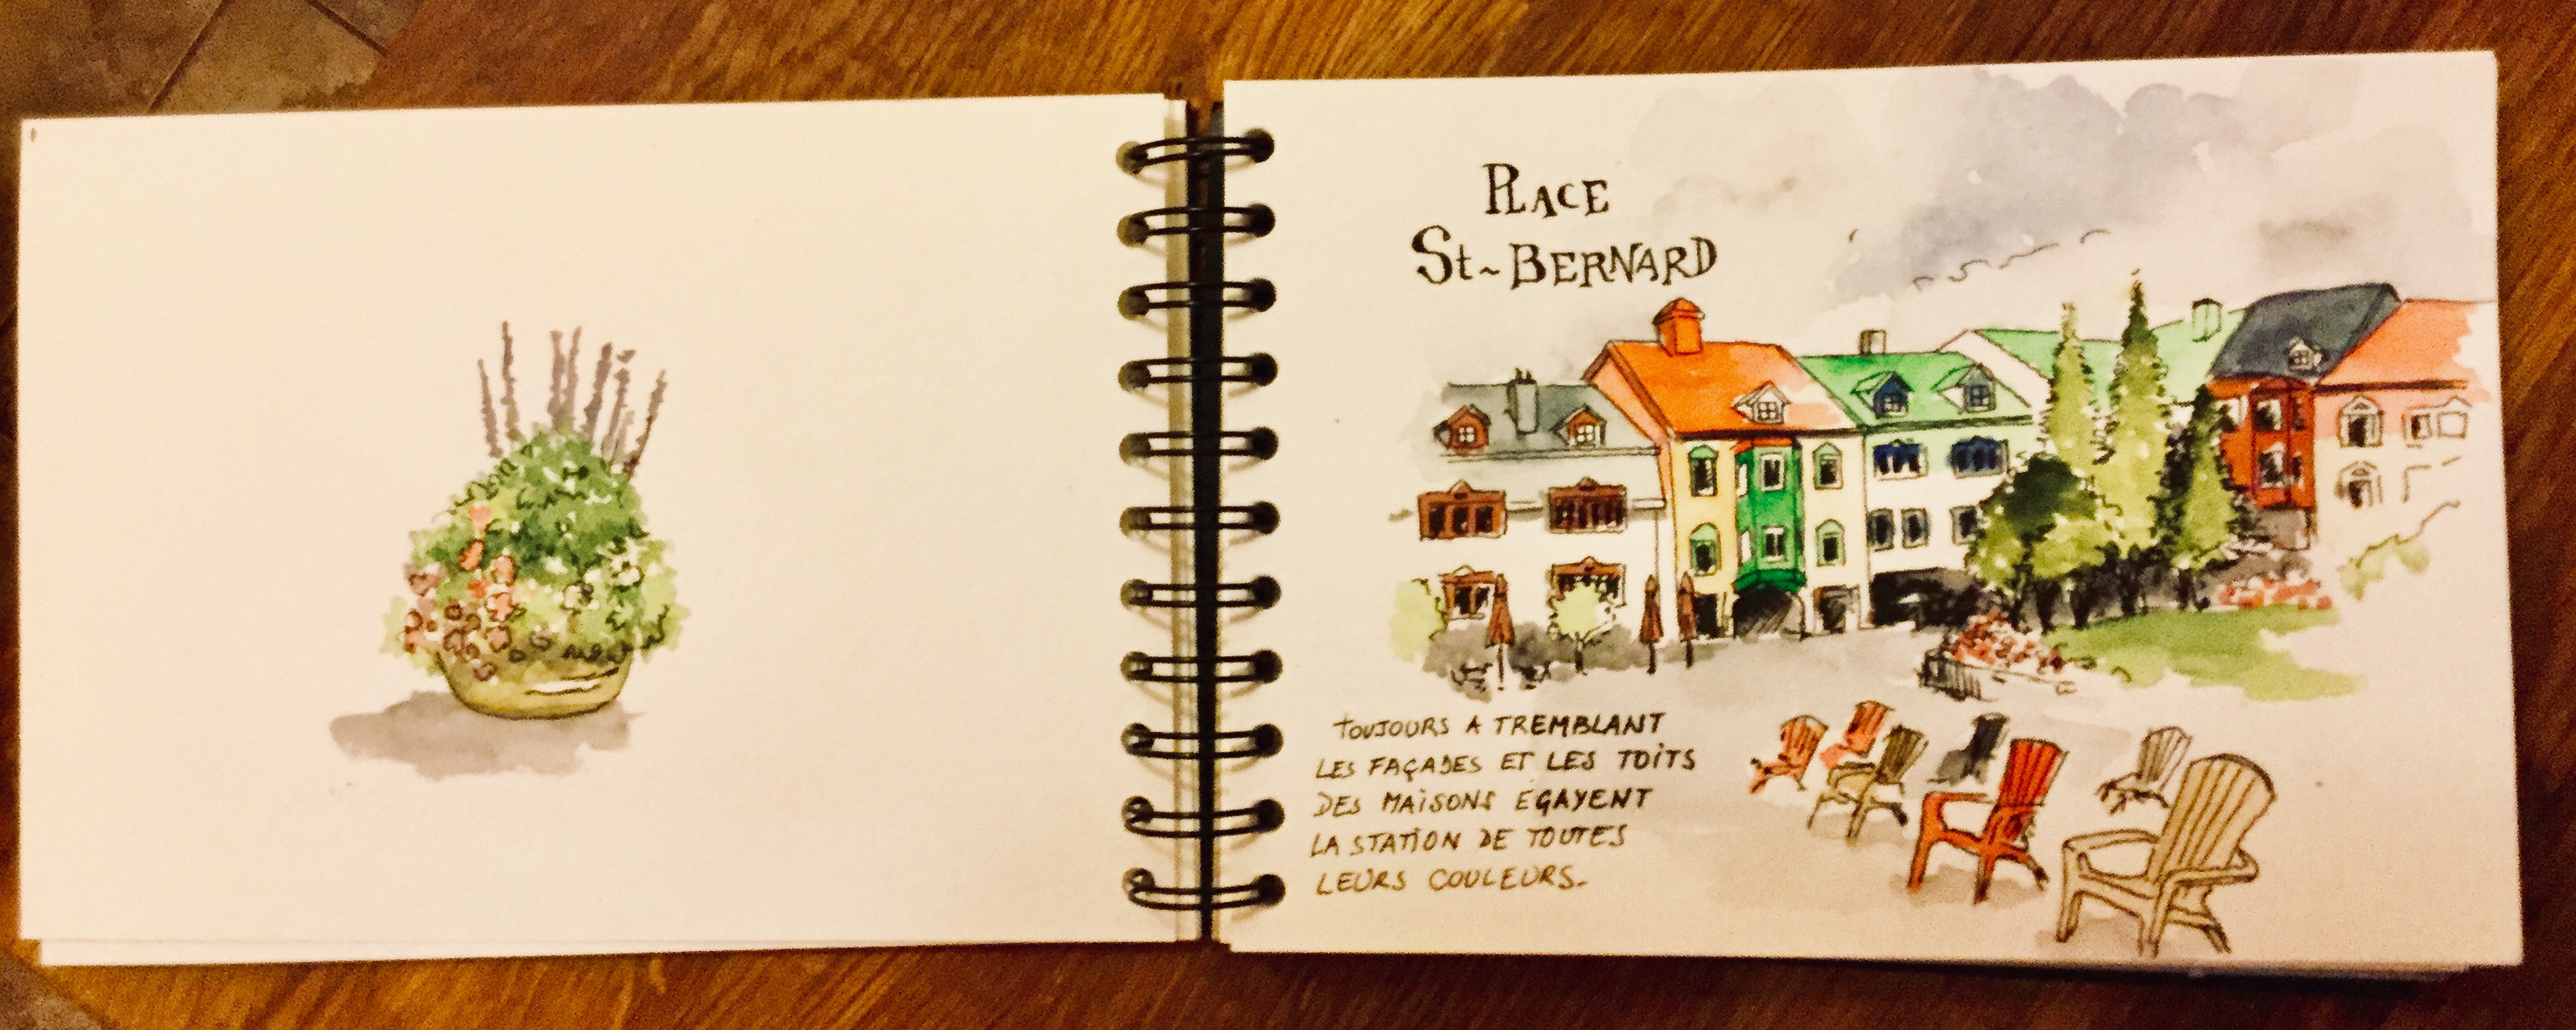 PLACE
St~BERNARD
TOUJOURS A TREMBLANT
LES FAÇADES ET LES TOITS
DES MAISONS EGAYENT
LA STATION DE TOUTES
LEURS COULEURS.